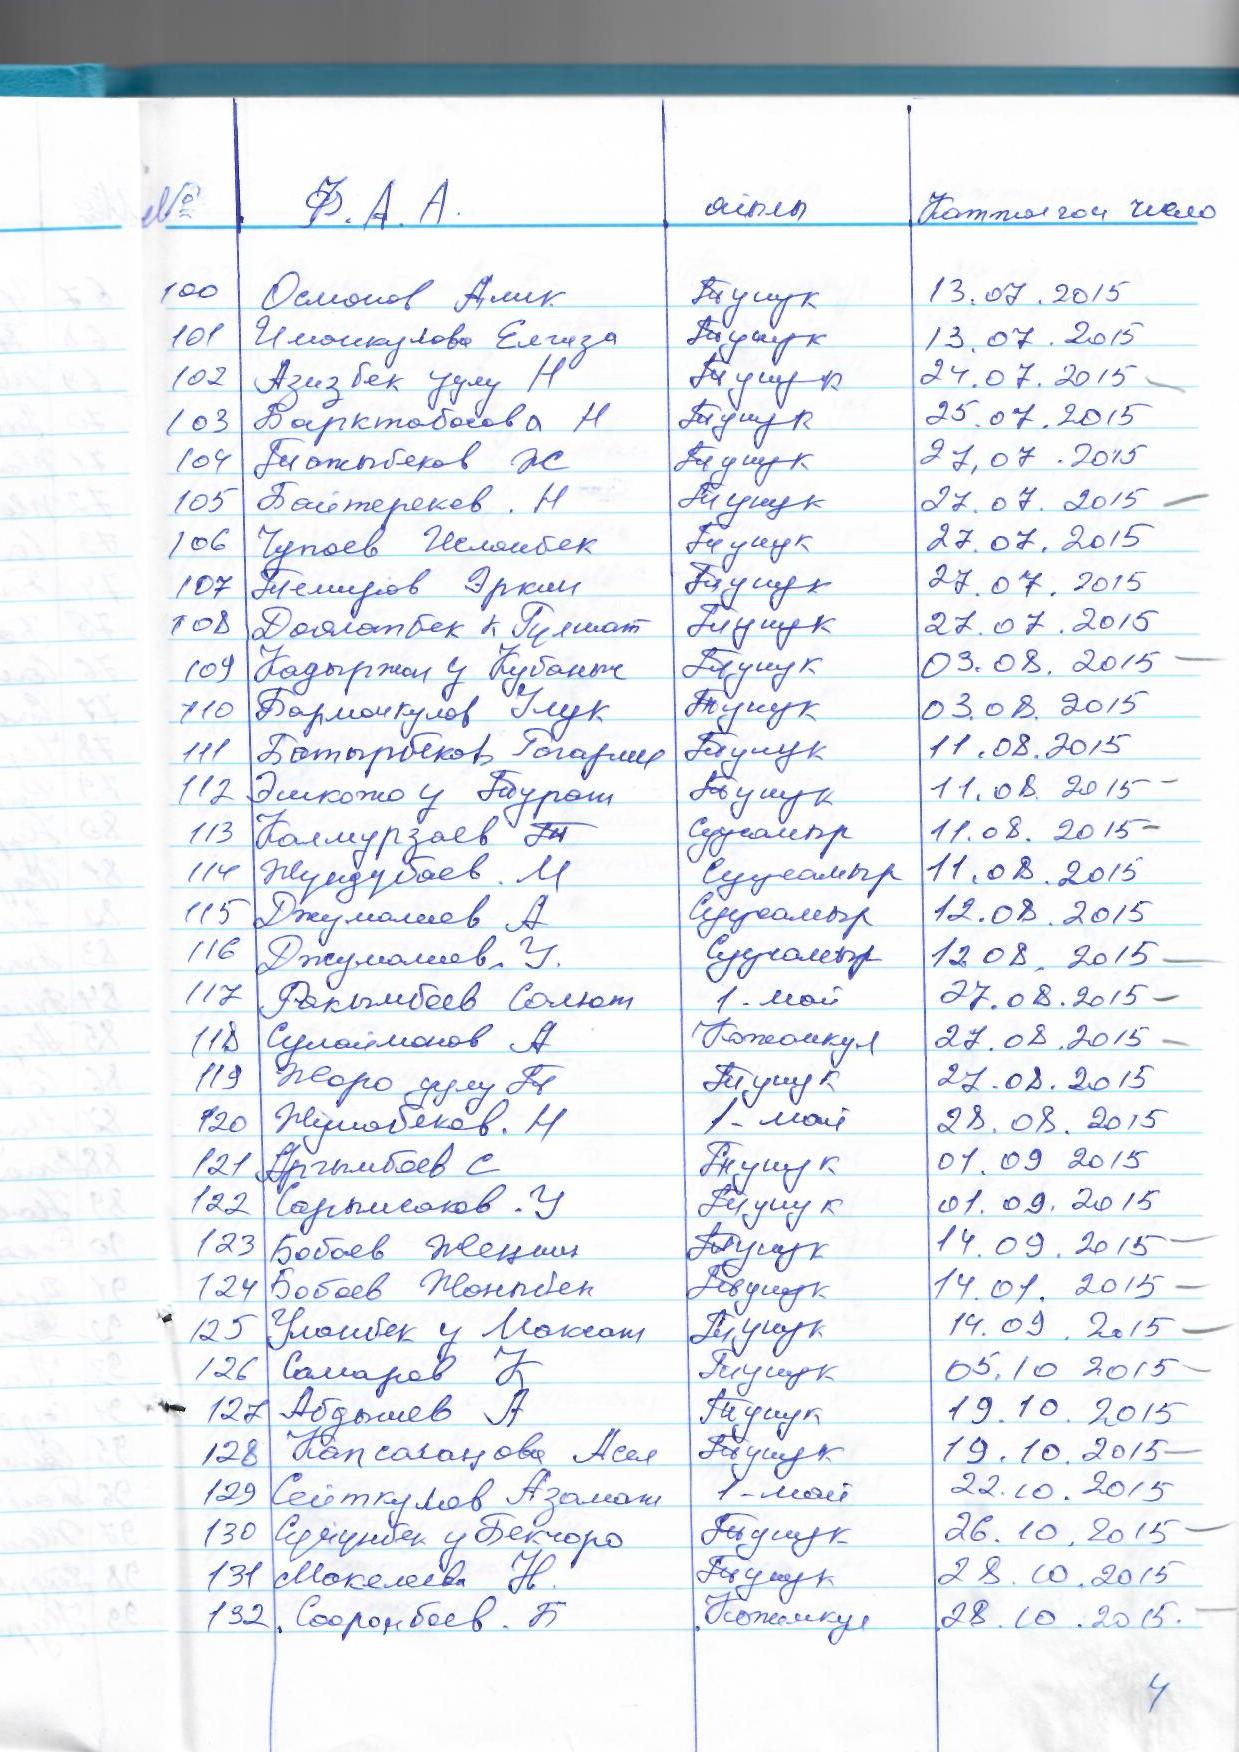 № Ф.А.А. айылы Катталган число
100 Осмонов Алик Тунук 13.07.2015
101 Имонкулова Елчиза Тунук 13.07.2015
102 Азизбек уулу Н Тунук 24.07.2015
103 Барктабасова Н Тунук 25.07.2015
104 Токтыбеков Ж Тунук 27,07.2015
105 Байтереков. Н Тунук 27.07.2015
106 Чупаев Исланбек Тунук 27.07.2015
107 Темиров Эркин Тунук 27.07.2015
108 Доолатбек к Гулмат Тунук 27.07.2015
109 Кадыржан у Кубаныч Тунук 03.08.2015
110 Барманкулов Улук Тунук 03.08.2015
111 Батырбеков Гагарин Тунук 11.08.2015
112 Эшкожо у Турат Тунук 11.08 2015
113 Калмурзаев Т Суусамыр 11.08.2015
114 Жундубаев. М Суусамыр 11.08.2015
115 Джумалиев А Суусамыр 12.08.2015
116 Джумалиев. У. Суусамыр 12 08. 2015
117 Ракымбаев Салют 1-май 27.08.2015
118 Сулайманов А Кожомкул 27.08.2015
119 Жоро уулу Т Тунук 27.08.2015
120 Жумабеков. Н 1-май 28.08.2015
121 Аргымбаев С Тунук 01.09 2015
122 Сарымсаков. У Тунук 01.09.2015
123 Бобоев Жецин Тунук 14.09.2015
124 Бобоев Жаныбек Тунук 14.01.2015
125 Уланбек у Максат Тунук 14.09.2015
126 Самаров К Тунук 05.10 2015
127 Абдышев А Тунук 19.10.2015
128 Капсаланова Асел Тунук 19.10.2015
129 Сейткулов Азамат 1-май 22.10.2015
130 Суйунбек у Бекчоро Тунук 26.10.2015
131 Макелева Н. Тунук 28.10.2015
132. Сооронбаев. Б Кожомкул 28.10.2015.
4